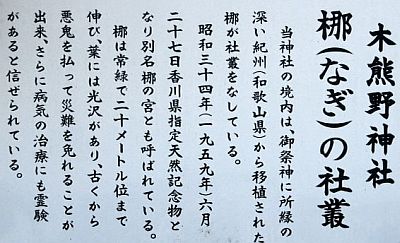 木熊野神社
梛(なぎ)の社叢
当神社の境内は、御祭神に所縁の
深い紀州(和歌山県)から移植された
梛が社叢をなしている。
昭和三十四年(一九五九年)六月
二十七日香川県指定天然記念物と
なり別名梛の宮とも呼ばれている。
梛は常緑で二十メートル位まで
伸び、葉には光沢があり、古くから
悪鬼を払って災難を免れることが
出来、さらに病気の治療にも霊験
があると信ぜられている。